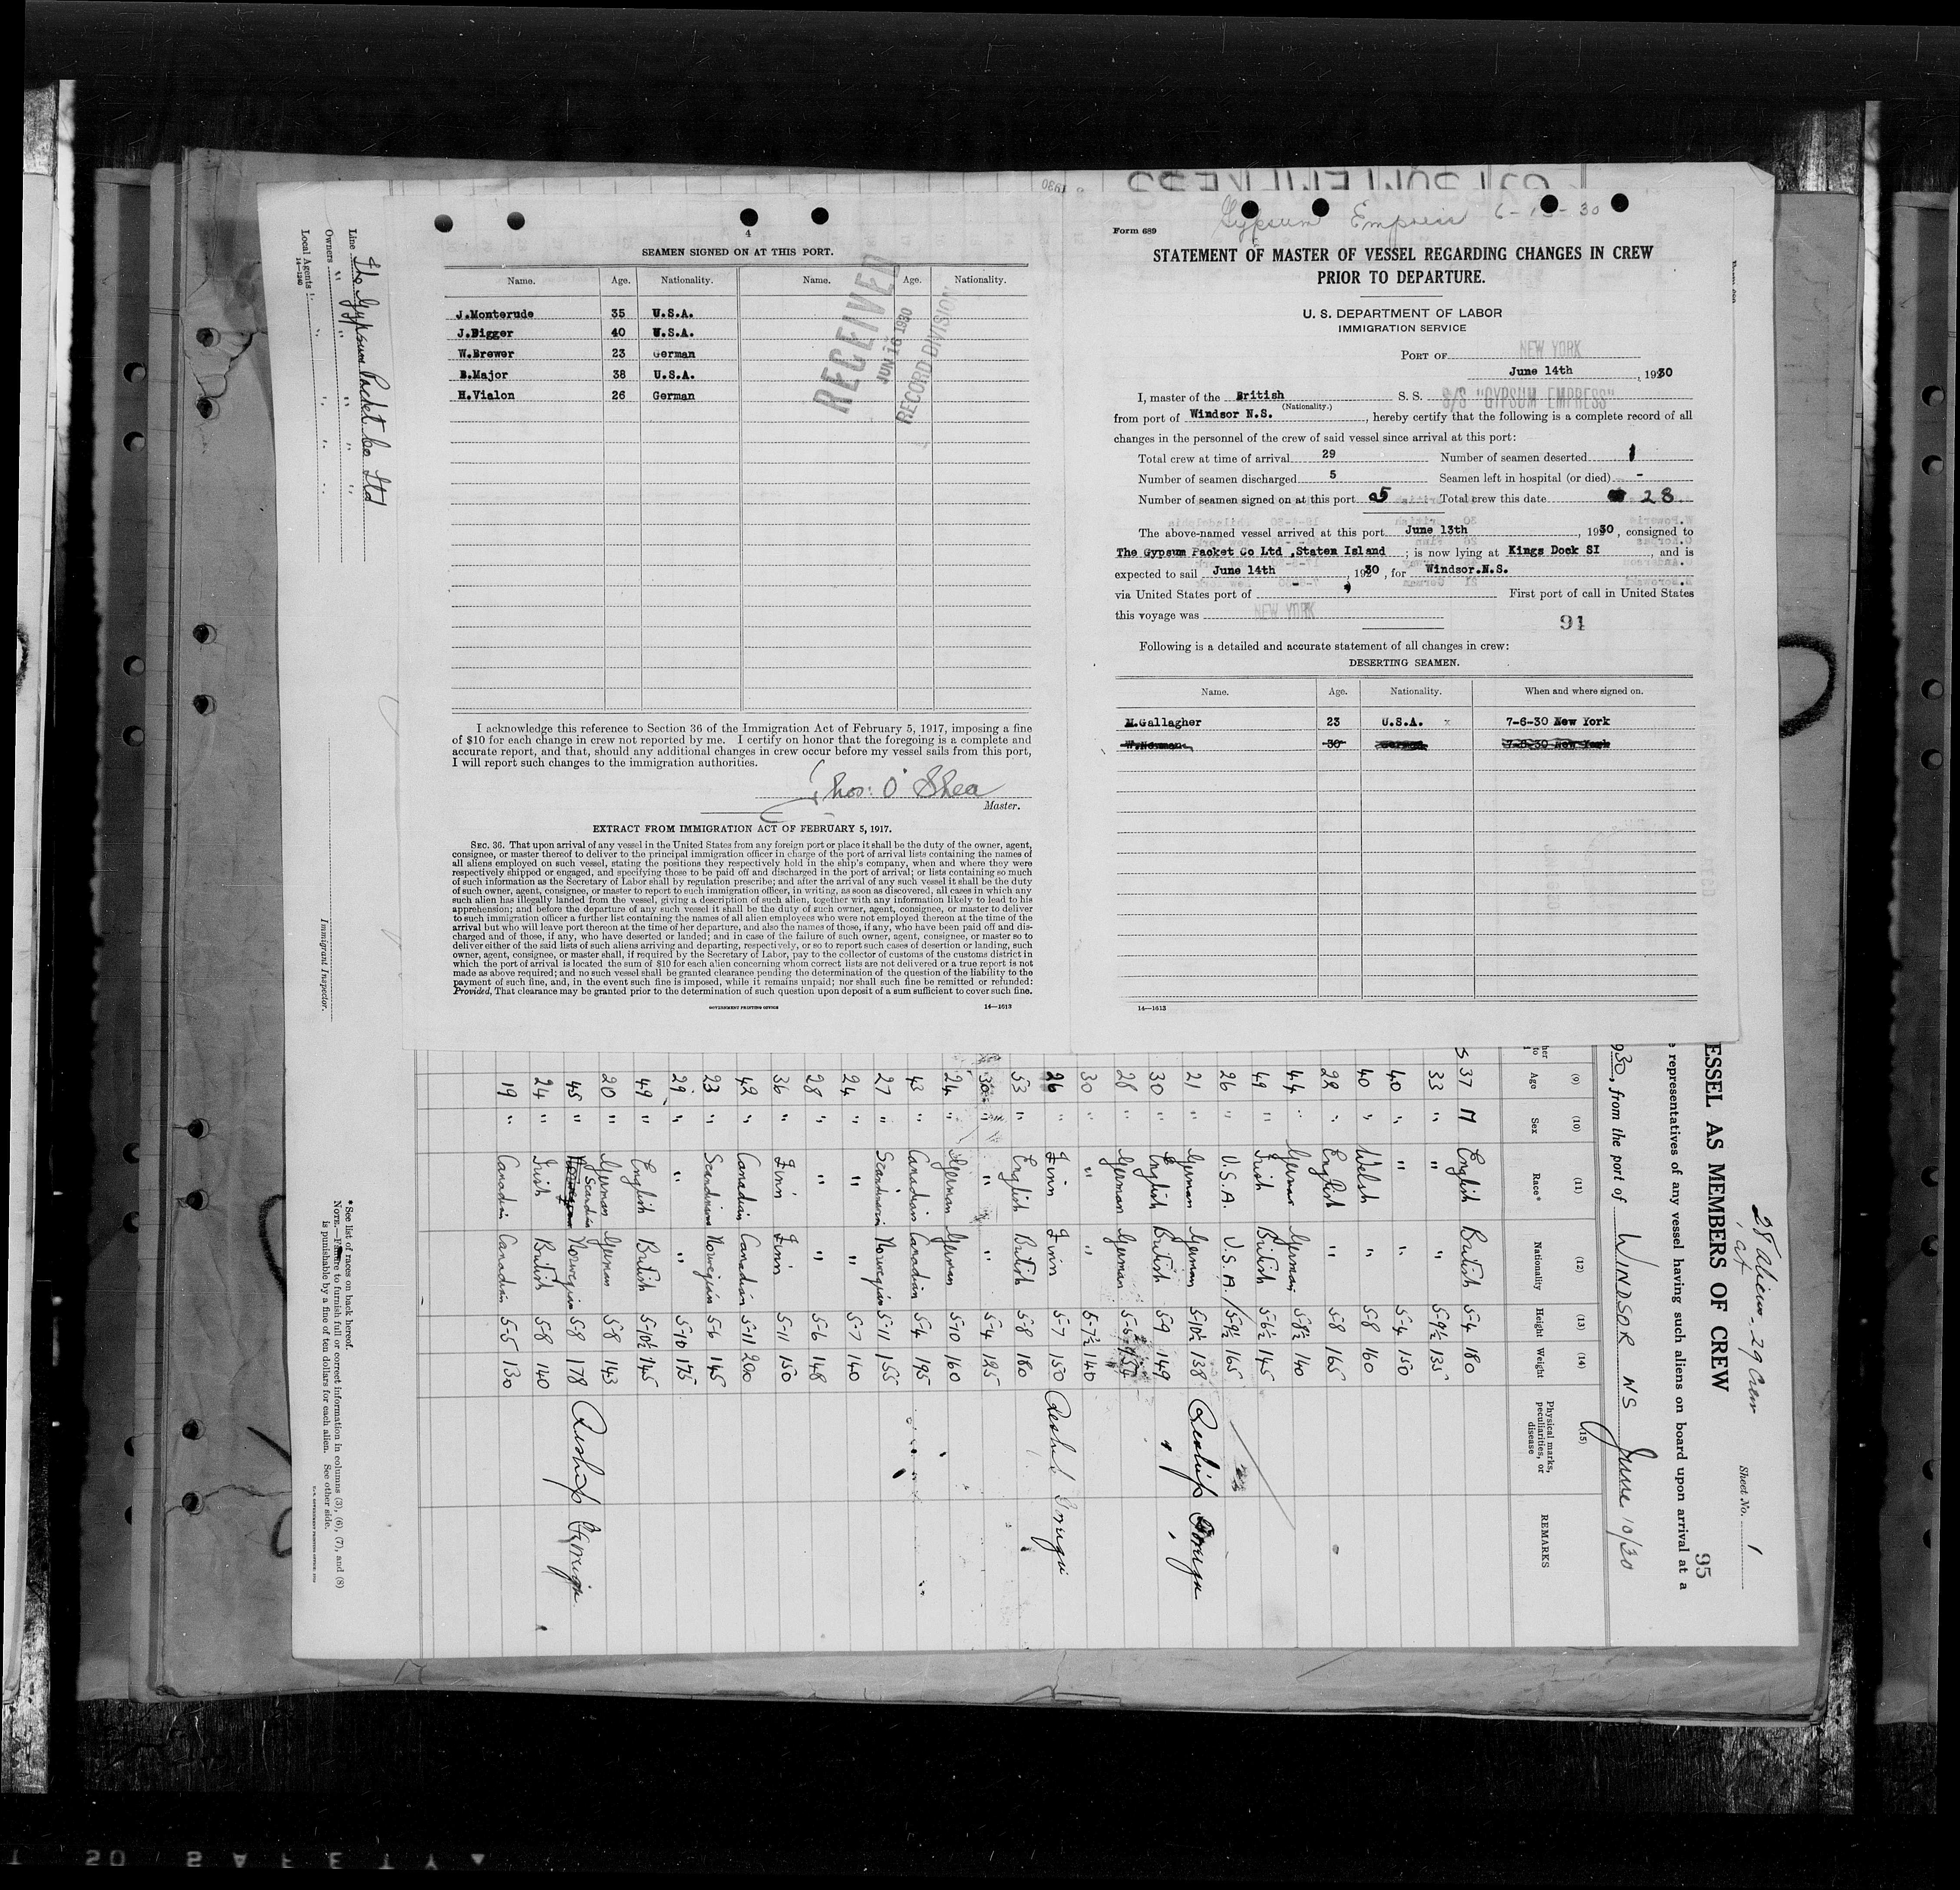 4
SEAMEN SIGNED ON AT THIS PORT.
Name. Age. Nationality. Name. Age. Nationality.
J.Monterude 35 U.S.A.
J.Bigger 40 U.S.A.
W.Brewer 23 German
B.Major 38 U.S.A.
H.Vialon 26 German
RECEIVED
JUN 16 1930
RECORD DIVISION
I acknowledge this reference to Section 36 of the Immigration Act of February 5, 1917, imposing a fine
of $10 for each change in crew not reported by me. I certify on honor that the foregoing is a complete and
accurate report, and that, should any additional changes in crew occur before my vessel sails from this port,
I will report such changes to the immigration authorities.
Thos: O'Shea
Master.
EXTRACT FROM IMMIGRATION ACT OF FEBRUARY 5, 1917.
SEC. 36. That upon arrival of any vessel in the United States from any foreign port or place it shall be the duty of the owner, agent,
consignee, or master thereof to deliver to the principal immigration officer in charge of the port of arrival lists containing the names of
all aliens employed on such vessel, stating the positions they respectively hold in the ship's company, when and where they were
respectively shipped or engaged, and specifying those to be paid off and discharged in the port of arrival; or lists containing so much
of such information as the Secretary of Labor shall by regulation prescribe; and after the arrival of any such vessel it shall be the duty
of such owner, agent, consignee, or master to report to such immigration officer, in writing, as soon as discovered, all cases in which any
such alien has illegally landed from the vessel, giving a description of such alien, together with any information likely to lead to his
apprehension; and before the departure of any such vessel it shall be the duty of such owner, agent, consignee, or master to deliver
to such immigration officer a further list containing the names of all alien employees who were not employed thereon at the time of the
arrival but who will leave port thereon at the time of her departure, and also the names of those, if any, who have been paid off and dis-
charged and of those, if any, who have deserted or landed; and in case of the failure of such owner, agent, consignee, or master so to
deliver either of the said lists of such aliens arriving and departing, respectively, or so to report such cases of desertion or landing, such
owner, agent, consignee, or master shall, if required by the Secretary of Labor, pay to the collector of customs of the customs district in
which the port of arrival is located the sum of $10 for each alien concerning whom correct lists are not delivered or a true report is not
made as above required; and no such vessel shall be granted clearance pending the determination of the question of the liability to the
payment of such fine, and, in the event such fine is imposed, while it remains unpaid; nor shall such fine be remitted or refunded:
Provided, That clearance may be granted prior to the determination of such question upon deposit of a sum sufficient to cover such fine.
GOVERNMENT PRINTING OFFICE 14—1613
Gypsum Empress
Form 689
STATEMENT OF MASTER OF VESSEL REGARDING CHANGES IN CREW
PRIOR TO DEPARTURE.
U. S. DEPARTMENT OF LABOR
IMMIGRATION SERVICE
PORT OF NEW YORK
June 14th, 1930
I, master of the British S. S. S/S "GYPSUM EMPRESS"
(Nationality.)
from port of Windsor N.S., hereby certify that the following is a complete record of all
changes in the personnel of the crew of said vessel since arrival at this port:
Total crew at time of arrival 29 Number of seamen deserted 1
Number of seamen discharged 5 Seamen left in hospital (or died) -
Number of seamen signed on at this port 5 Total crew this date 28
The above-named vessel arrived at this port June 13th, 1930, consigned to
The Gypsum Packet Co Ltd ,Staten Island; is now lying at Kings Dock SI, and is
expected to sail June 14th, 1930, for Windsor.N.S.
via United States port of First port of call in United States
this voyage was NEW YORK
91
Following is a detailed and accurate statement of all changes in crew:
DESERTING SEAMEN.
Name. Age. Nationality. When and where signed on.
M.Gallagher 23 U.S.A. x 7-6-30 New York
W.Norman 30 German 7-6-30 New York
14—1613
28 Aliens - 29 Crew
Sheet No. 1
95
ESSEL AS MEMBERS OF CREW
representatives of any vessel having such aliens on board upon arrival at a
930, from the port of WINDSOR NS June 10/30
(9) (10) (11) (12) (13) (14) (15)
Age Sex Race* Nationality Height Weight Physical marks, peculiarities, or disease REMARKS
37 M English British 5-4 180
33 " " " 5-9½ 135
40 " " " 5-4 150
40 " Welsh " 5-8 160
28 " English " 5-8 165
44 " German German 5-8½ 140
49 " Irish British 5-6½ 145
26 " U.S.A. U.S.A. 5-9½ 165
21 " German German 5-10½ 138
30 " English British 5-9 149
28 " German German 5-6
30 " " " 5-7½ 140
26 " Finn Finn 5-7 150
53 " English British 5-8 180
30 " " " 5-4 125
24 " German German 5-10 160
43 " Canadian Canadian 5-4 195
27 " Scandinavin Norwegian 5-11 155
24 " " " 5-7 140
28 " " " 5-6 148
36 " Finn Finn 5-11 150
42 " Canadian Canadian 5-11 200
23 " Scandinavn Norwegian 5-6 145
29 " " " 5-10 175
49 " English British 5-10½ 145
20 " German German 5-8 143
45 " Scandin Norwegian 5-8 178
24 " Irish British 5-8 140
19 " Canadian Canadian 5-5 130
Line The Gypsum Packet Co Ltd
Owners " " " "
Local Agents " " " "
14—1240
Immigrant Inspector.
*See list of races on back hereof.
NOTE.—Failure to furnish full or correct information in columns (3), (6), (7), and (8)
is punishable by a fine of ten dollars for each alien. See other side.
SAFETY